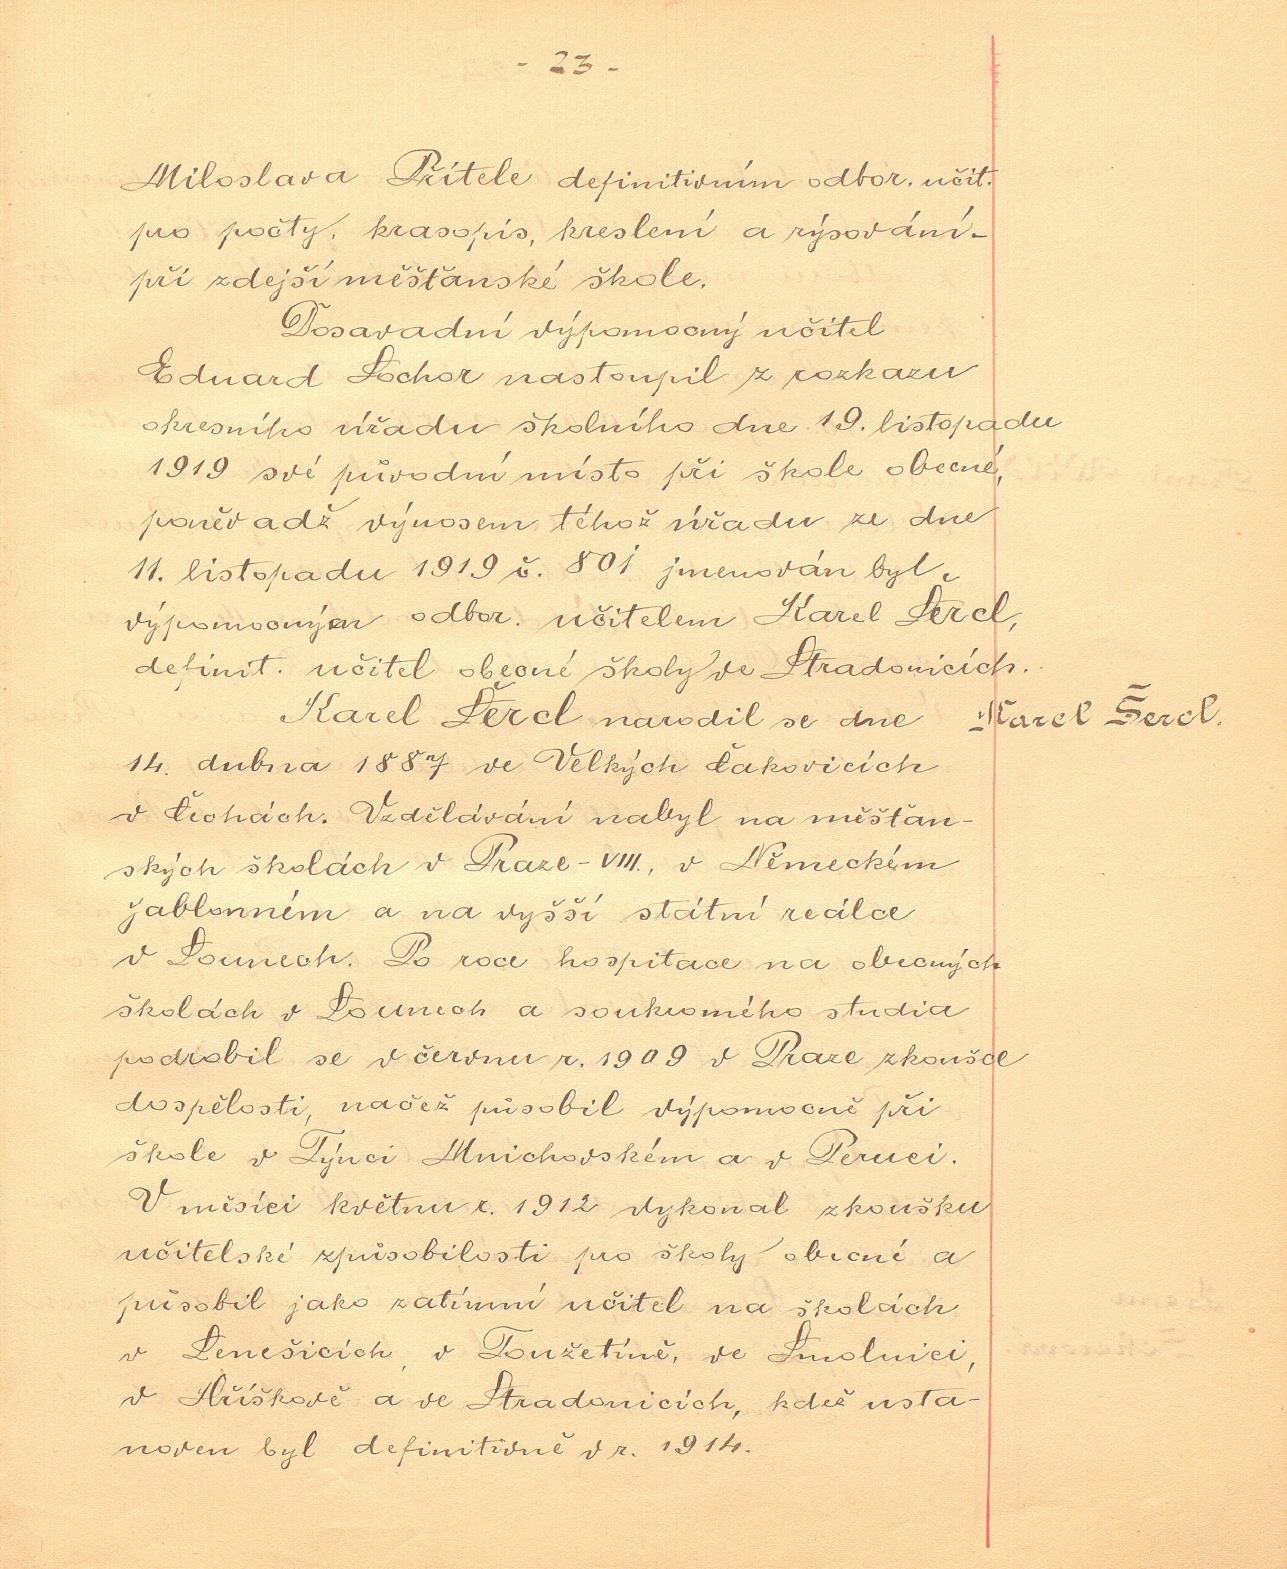 - 23 -
Miloslava Přítele definitivním odbor. učit.
pro počty, krasopis, kreslení a rýsování
při zdejší měšťanské škole.
Dosavadní výpomocný učitel
Eduard Lochor nastoupil z rozkazu
okresního úřadu školního dne 19. listopadu
1919 své původní místo při škole obecné,
poněvadž výnosem téhož úřadu ze dne
11. listopadu 1919 č. 801 jmenován byl
výpomocným odbor. učitelem Karel Šercl,
definit. učitel obecné školy ve Stradonicích.
Karel Šercl narodil se dne
Karel Šercl.
14. dubna 1887 ve Velkých Čakovicích
v Čechách. Vzdělávání nabyl na měšťan-
ských školách v Praze-VIII., v Německém
Jablonném a na vyšší státní reálce
v Lounech. Po roce hospitace na obecných
školách v Lounech a soukromého studia
podrobil se v červnu r. 1909 v Praze zkoušce
dospělosti, načež působil výpomocně při
škole v Týnci Mnichovském a v Peruci.
V měsíci květnu r. 1912 vykonal zkoušku
učitelské způsobilosti pro školy obecné a
působil jako zatímní učitel na školách
v Lenešicích, v Toužetíně, ve Smolnici,
v Hříškově a ve Stradonicích, kdež usta-
noven byl definitivně v r. 1914.